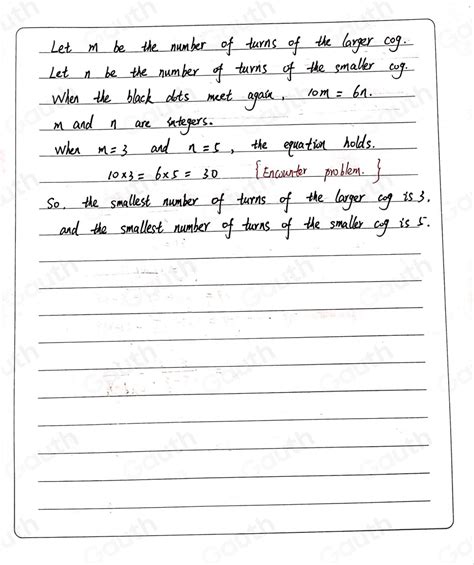 Let m be the number of turns of the larger cog.
Let n be the number of turns of the smaller cog.
When the black dots meet again, 10m = 6n.
m and n are integers.
When m=3 and n=5, the equation holds.
10×3 = 6×5 = 30 {Encounter problem.}
So, the smallest number of turns of the larger cog is 3.
and the smallest number of turns of the smaller cog is 5.
Gauth